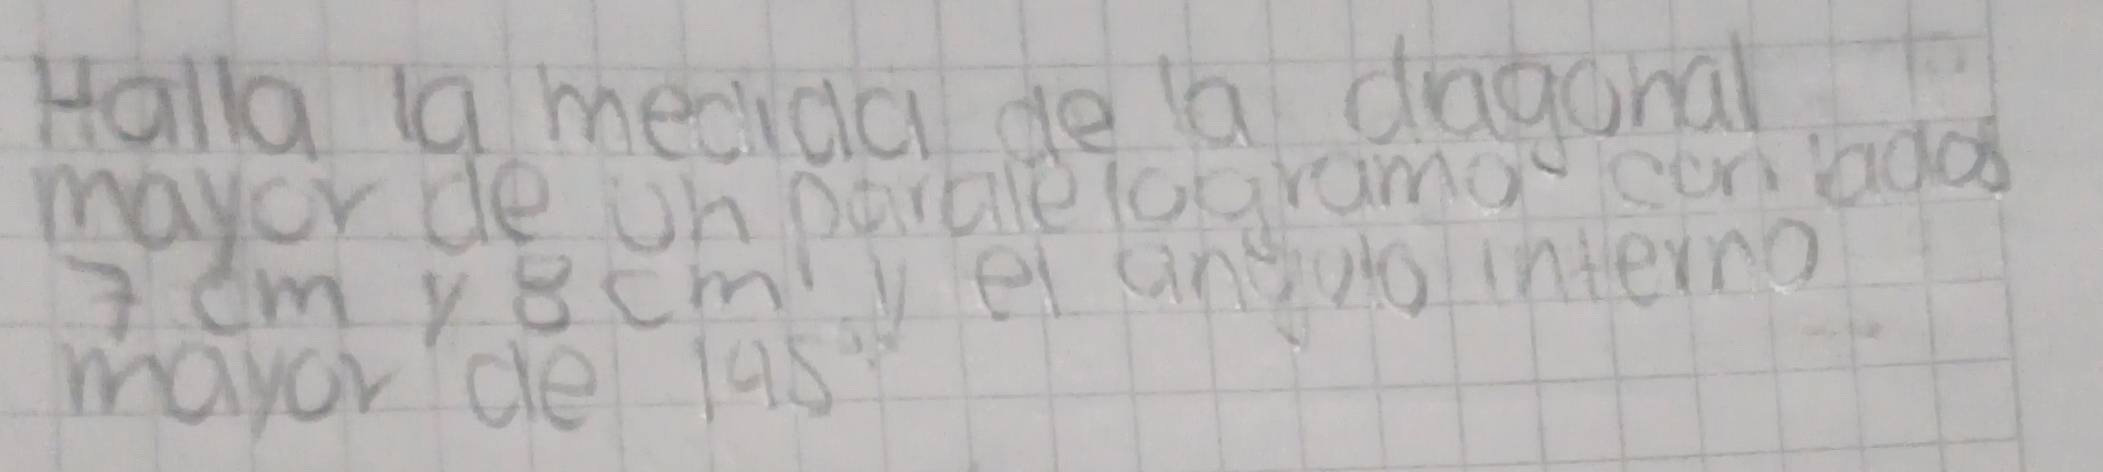 Halla la medida de la diagonal
mayor de un paralelogramo con lados
7 cm y 8 cm y el angulo interno
mayor de